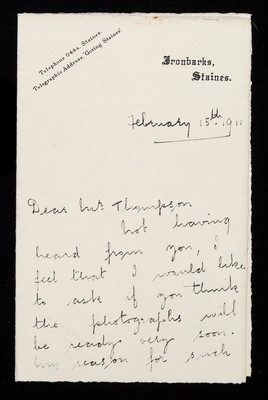 Telephone 0442, Staines.
Telegraphic Address, "Goring Staines"
Ironbarks,
Staines.
February 15th 1911
Dear Mr. Thompson
Not having
heard from you, I
feel that I would like
to ask if you think
the photographs will
be ready very soon.
My reason for such